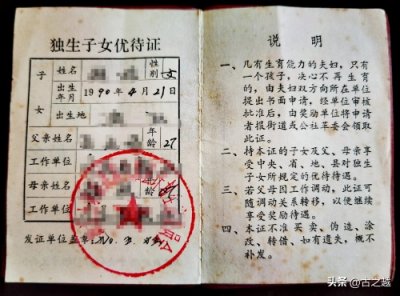 独生子女优待证
子 姓名 性别 女
出生年月 1990年4月21日
女 出生地
父亲姓名 年龄 27
工作单位
母亲姓名 年龄
工作单位
发证单位盖章
说 明
一、凡有生育能力的夫妇，只有
一个孩子，决心不再生育
的，由夫妇双方向所在单位
提出书面申请，经单位审核
批准后，由奖励单位将申请
者报街道或公社革委会领取
此证。
二、持本证的子女及父、母亲享
受中央、省、地、县对独生
子女所规定的优待待遇。
三、若父母因工作调动，此证可
随调动关系转移，以便继续
享受奖励待遇。
四、本证不准买卖、伪造、涂
改、转借，如有遗失，概不
补发。
头条 @古之越